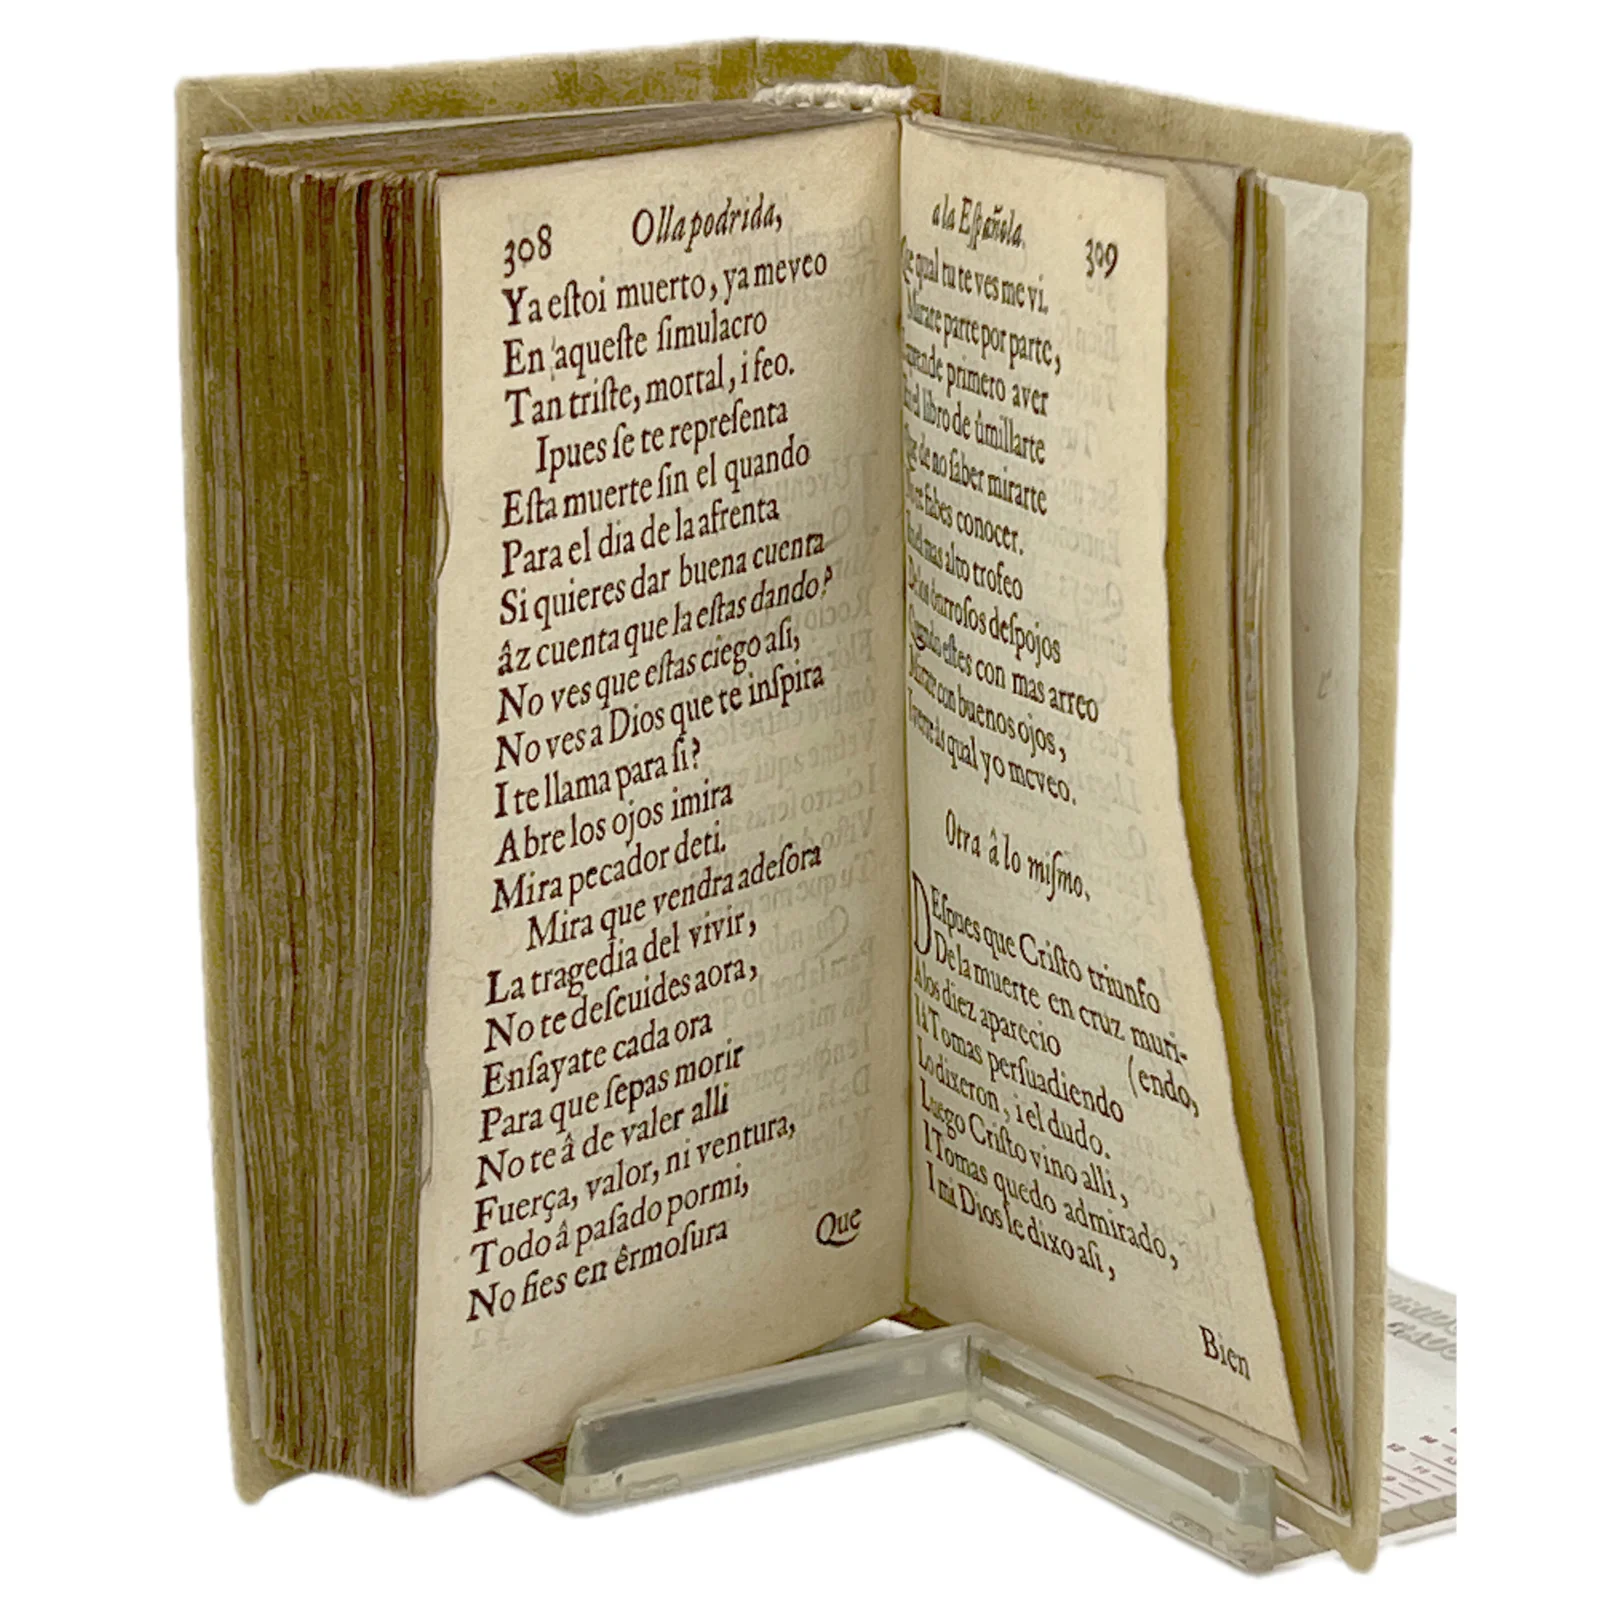 308 Olla podrida,
Ya eſtoi muerto, ya me veo
En aqueſte ſimulacro
Tan triſte, mortal, i feo.
I pues ſe te repreſenta
Eſta muerte ſin el quando
Para el dia de la afrenta
Si quieres dar buena cuenta
âz cuenta que la eſtas dando?
No ves que eſtas ciego aſi,
No ves a Dios que te inſpira
I te llama para ſi?
Abre los ojos i mira
Mira pecador de ti.
Mira que vendra adeſora
La tragedia del vivir,
No te deſcuides aora,
Enſayate cada ora
Para que ſepas morir
No te â de valer alli
Fuerça, valor, ni ventura,
Todo â paſado por mi,
No fies en êrmoſura
Que
a la Eſpañola. 309
Que qual tu te ves me vi.
Mirate parte por parte,
primero a ver
el libro de úmillarte
Que de no ſaber mirarte
ſabes conocer.
mas alto trofeo
De los deſpojos
Quando eſtes con mas arreo
Mirate con buenos ojos,
I qual yo me veo.
Otra â lo miſmo.
DEſpues que Criſto triunfo
De la muerte en cruz muri-
A los diez aparecio (endo,
I â Tomas perſuadiendo
Lo dixeron, i el dudo.
Luego Criſto vino alli,
I Tomas quedo admirado,
I mi Dios le dixo aſi,
Bien